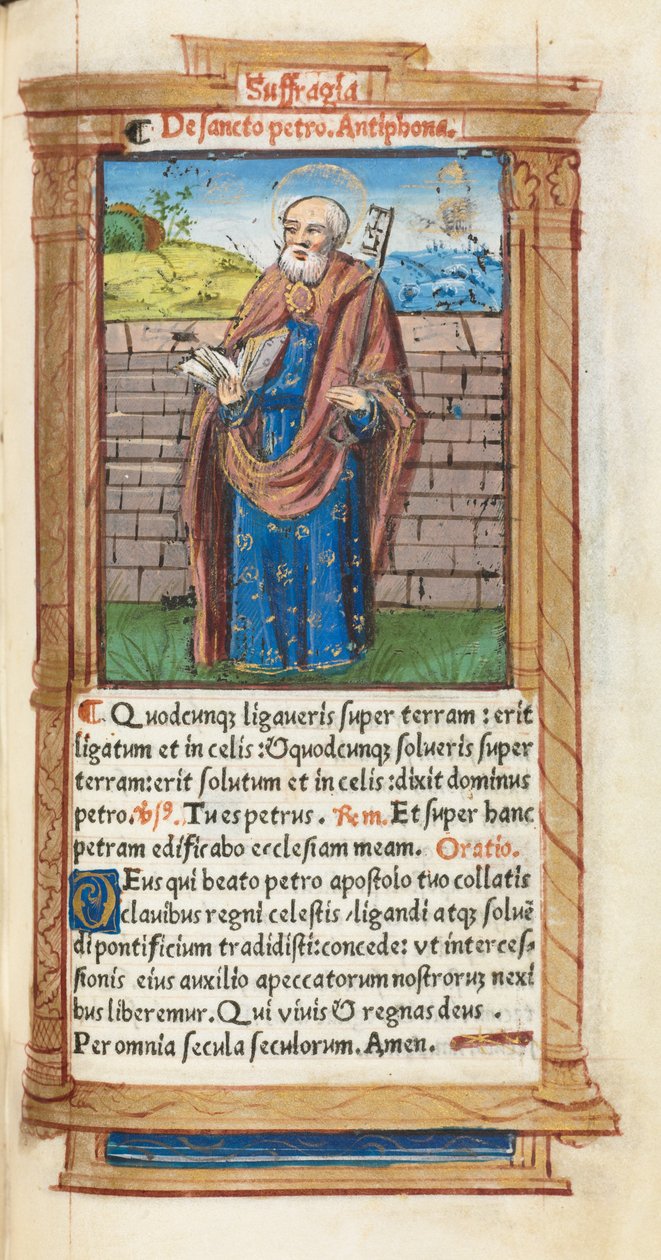 Suffragia
¶ De sancto petro. Antiphona.
¶ Quodcunqꝫ ligaueris super terram : erit
ligatum et in celis : & quodcunqꝫ solueris super
terram: erit solutum et in celis : dixit dominus
petro. v̕sꝰ. Tu es petrus . Rem. Et super hanc
petram edificabo ecclesiam meam. Oratio.
DEus qui beato petro apostolo tuo collatis
clauibus regni celestis / ligandi atqꝫ soluē
di pontificium tradidisti: concede: vt interces⸗
sionis eius auxilio a peccatorum nostroruꝫ nexi
bus liberemur. Qui viuis & regnas deus .
Per omnia secula seculorum. Amen.